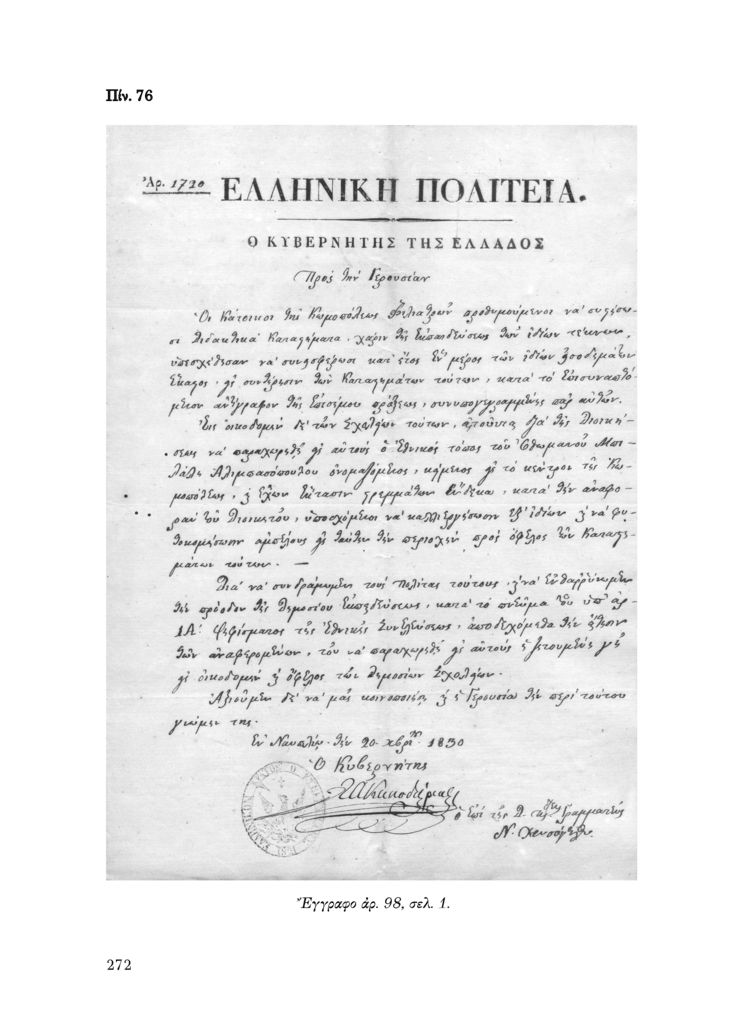 Πίν. 76
Ἀρ. 1720 ΕΛΛΗΝΙΚΗ ΠΟΛΙΤΕΙΑ.
Ο ΚΥΒΕΡΝΗΤΗΣ ΤΗΣ ΕΛΛΑΔΟΣ
Πρὸς τὴν Γερουσίαν
Οἱ Κάτοικοι τῆς Κωμοπόλεως Φιλιατρῶν προθυμούμενοι νὰ συστήσω-
σι διδακτικὰ Καταστήματα, χάριν τῆς ἐκπαιδεύσεως τῶν ἰδίων τέκνων,
ὑπεσχέθησαν νὰ συνεισφέρωσι κατ' ἔτος ἓν μέρος τῶν ἰδίων εἰσοδημάτων
ἕκαστος, εἰς συντήρησιν τῶν Καταστημάτων τούτων, κατὰ τὸ ἐπισυναπτό-
μενον ἀντίγραφον τῆς ἐπισήμου πράξεως, συνυπογεγραμμένης παρ' αὐτῶν.
Εἰς οἰκοδομὴν δὲ τῶν Σχολείων τούτων, αἰτοῦνται διὰ τῆς Διοική-
σεως νὰ παραχωρηθῇ εἰς αὐτοὺς ὁ ἐθνικὸς τόπος τοῦ Ὀθωμανοῦ Μπι-
λάλη Αλιμπασόπουλου ὀνομαζόμενος, κείμενος εἰς τὸ κέντρον τῆς Κω-
μοπόλεως, καὶ ἔχων ἔκτασιν στρεμμάτων ἕνδεκα, κατὰ τὴν ἀναφο-
ρὰν τοῦ Διοικητοῦ, ὑποσχόμενοι νὰ καλλιεργήσωσιν ἐξ ἰδίων καὶ νὰ φυ-
τοκομήσωσιν ἀμπέλους εἰς ταύτην τὴν περιοχὴν πρὸς ὄφελος τῶν Καταστη-
μάτων τούτων. —
Διὰ νὰ συνδράμωμεν τοὺς πολίτας τούτους, καὶ νὰ ἐνθαρρύνωμεν
τὴν πρόοδον τῆς δημοσίου ἐκπαιδεύσεως, κατὰ τὸ πνεῦμα τοῦ ὑπ' ἀρ.
ΙΑ΄. ψηφίσματος τῆς ἐθνικῆς Συνελεύσεως, ἀποδεχόμεθα τὴν αἴτησιν
τῶν ἀναφερομένων, τοῦ νὰ παραχωρηθῇ εἰς αὐτοὺς ἡ ζητουμένη γῆ
εἰς οἰκοδομὴν καὶ ὄφελος τῶν δημοσίων Σχολείων.
Ἀξιοῦμεν δὲ νὰ μᾶς κοινοποιήσῃ καὶ ἡ Γερουσία τὴν περὶ τούτου
γνώμην της.
Ἐν Ναυπλίῳ τὴν 20 1830
Ὁ Κυβερνήτης
Ι.Α. Καποδίστριας
ὁ ἐπὶ τῆς Γραμματεὺς
Ν. Χρυσόγελος.
Ἔγγραφο ἀρ. 98, σελ. 1.
272